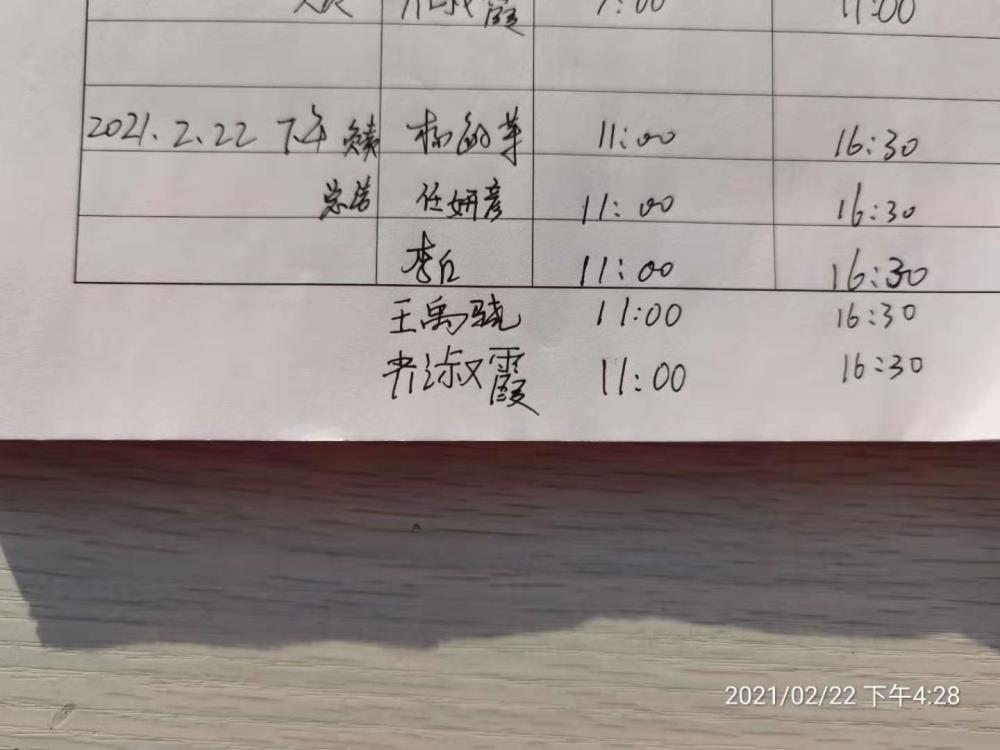 霞 7:00 11:00
2021.2.22 下午 11:00 16:30
任妍彦 11:00 16:30
李丘 11:00 16:30
王禹骁 11:00 16:30
齐淑霞 11:00 16:30
2021/02/22 下午4:28